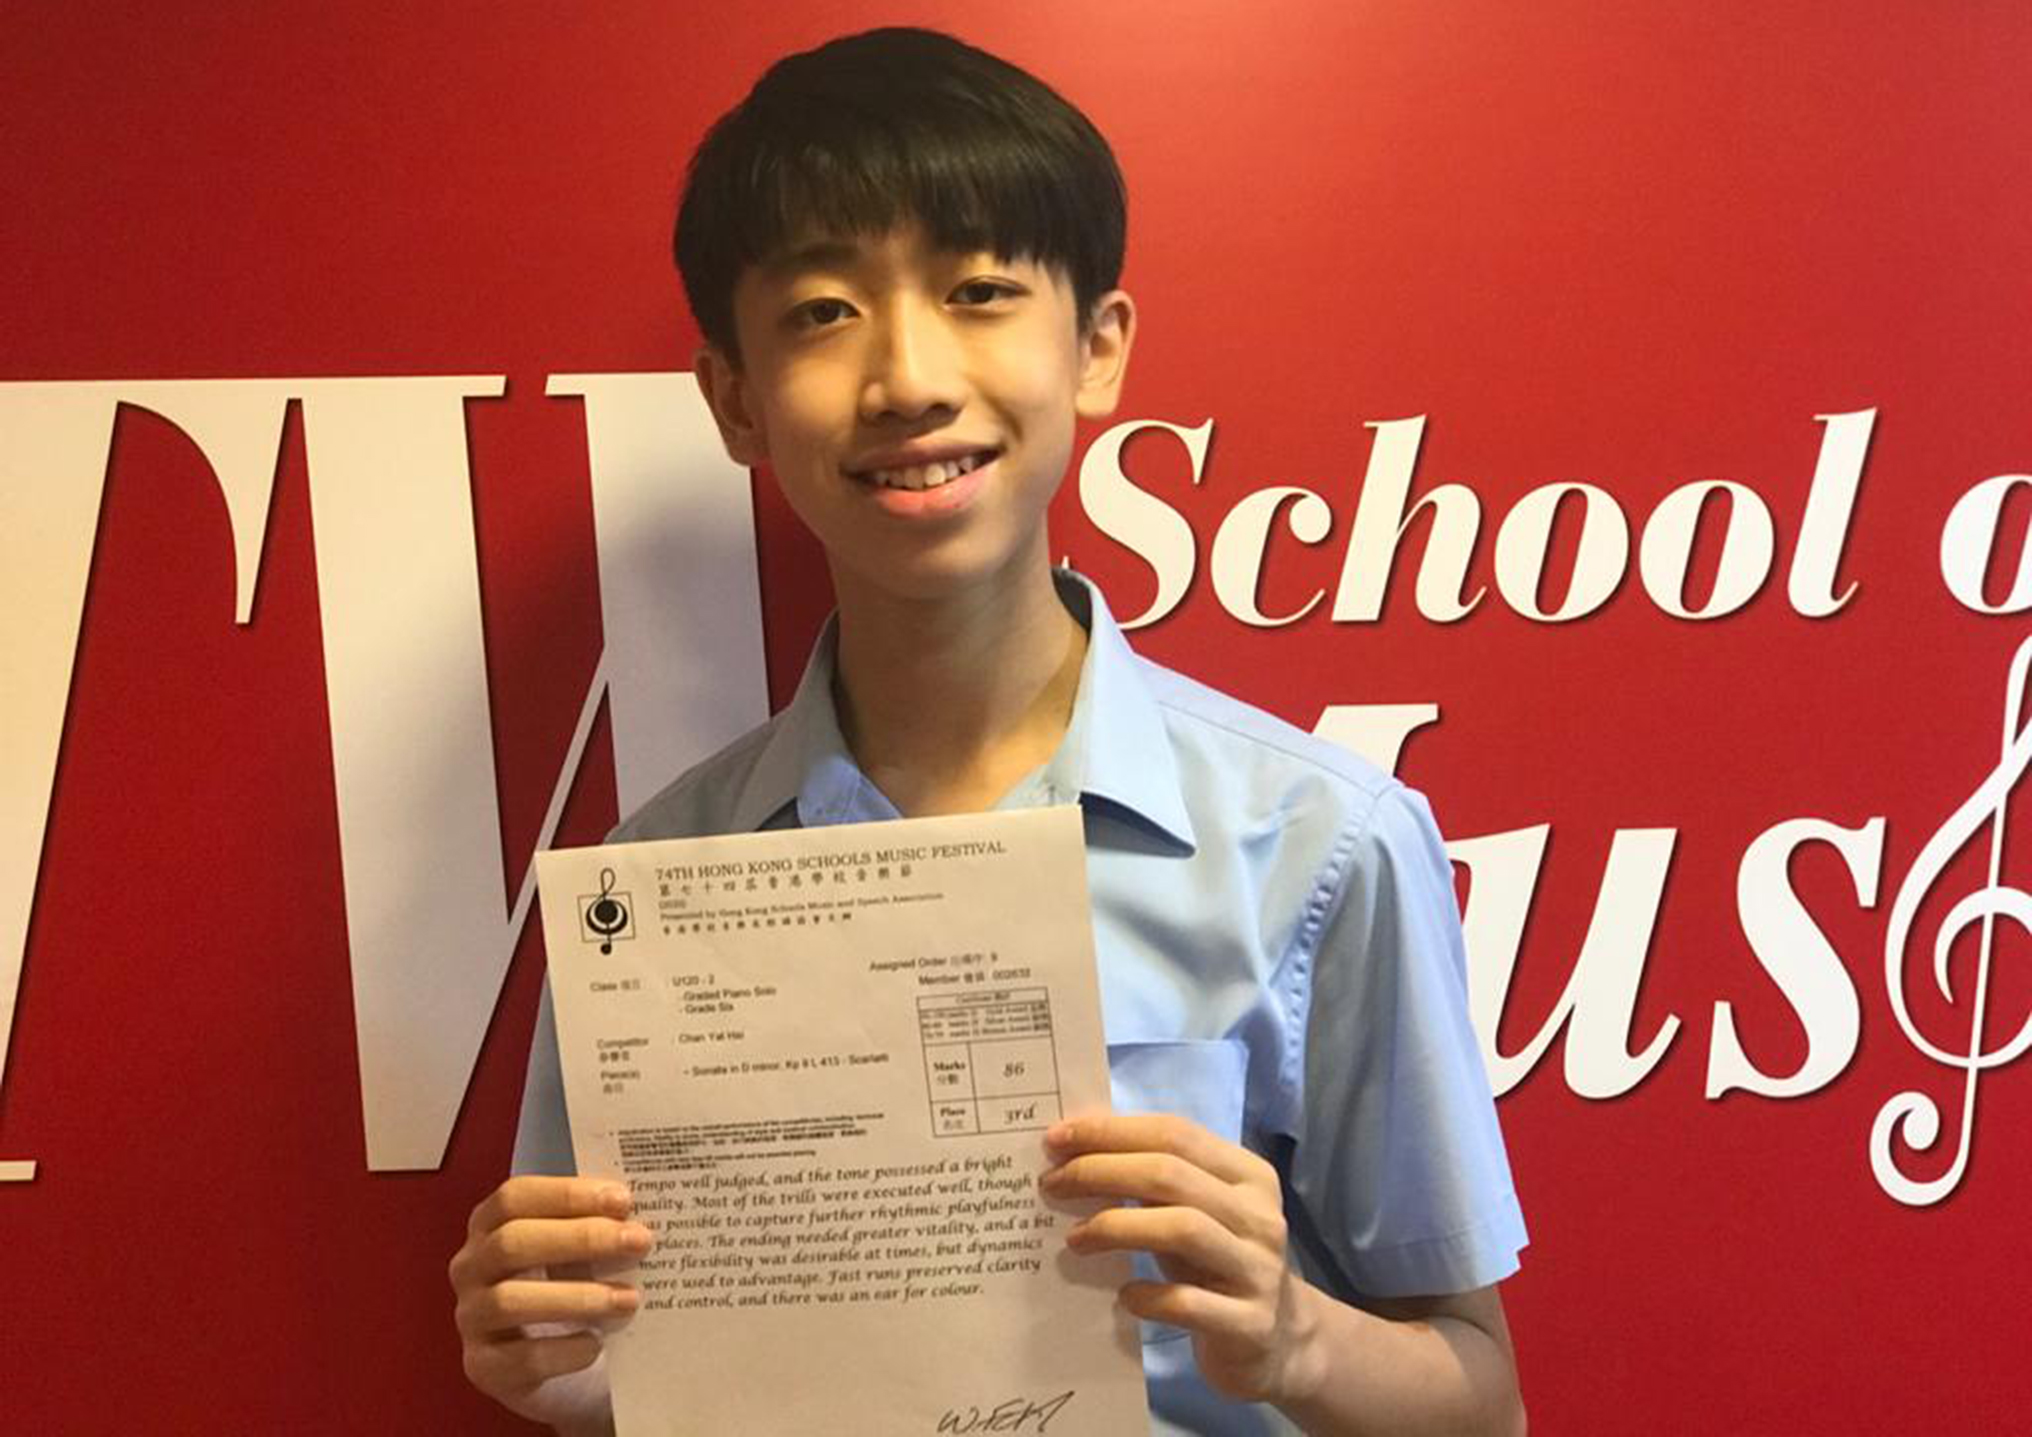 TW
School o
Mus
74TH HONG KONG SCHOOLS MUSIC FESTIVAL
第七十四屆香港學校音樂節
(2022)
Presented by Hong Kong Schools Music and Speech Association
Class 項目 : U120 - 2
- Graded Piano Solo
- Grade Six
Assigned Order 出場序: 9
Member 會員
Competitor : Chan Yat Hei
參賽者
Piece(s) - Sonata in D minor, Kp 9 L 413 - Scarlatti
曲目
Marks 86
分數
Place 3rd
名次
Tempo well judged, and the tone possessed a bright
quality. Most of the trills were executed well, though
as possible to capture further rhythmic playfulness
places. The ending needed greater vitality, and a bit
more flexibility was desirable at times, but dynamics
were used to advantage. Fast runs preserved clarity
and control, and there was an ear for colour.